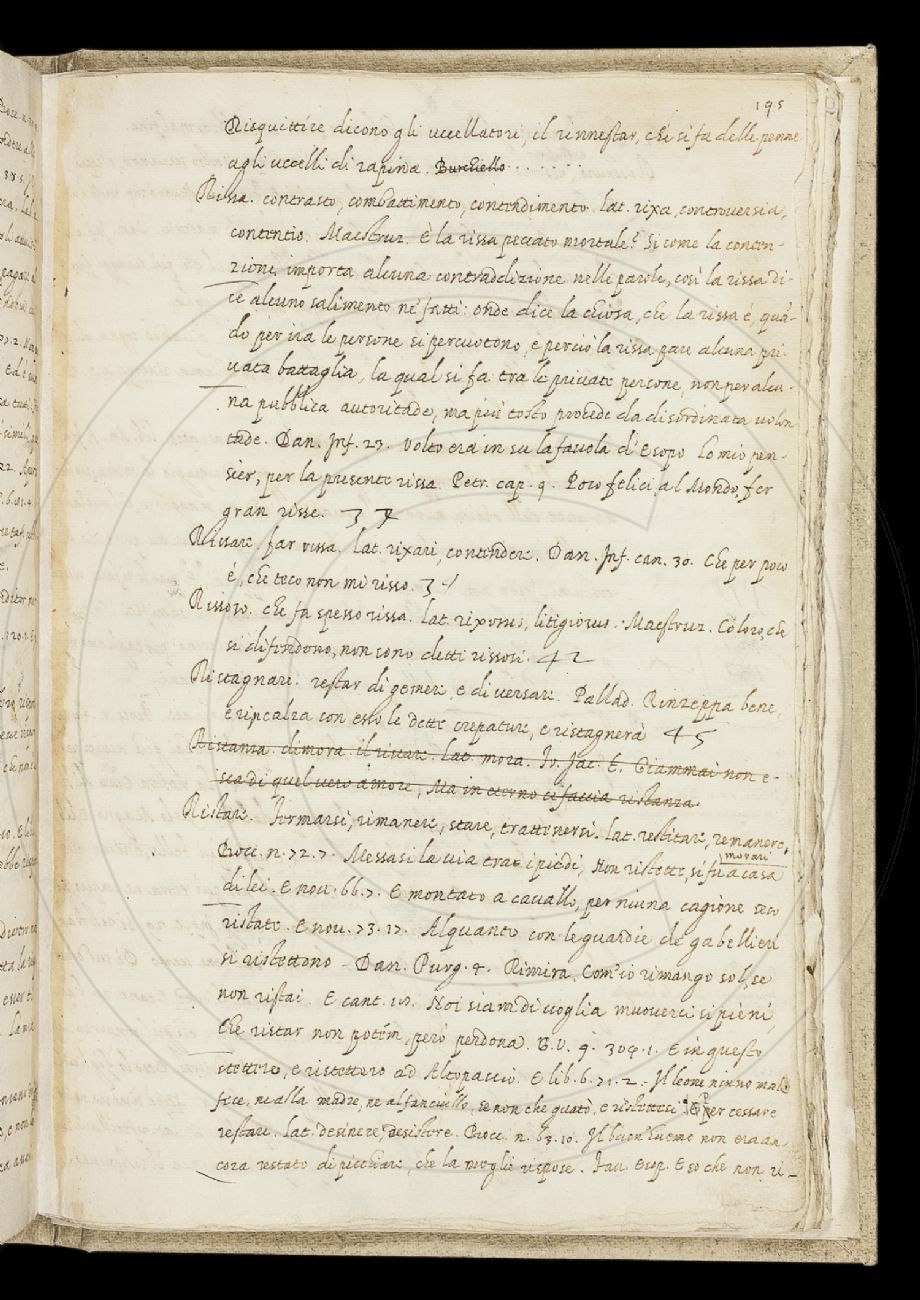 195
Risquittire dicono gli uccellatori, il rinnestar, che si fa delle penne
agli uccelli di rapina. Burchiello . . . . . .
Rissa. contrasto, combattimento, contendimento. lat. rixa, controversia,
contentio. Maestruz. È la rissa peccato mortale? Si come la conten-
zione importa alcuna contradictione nelle parole, così la rissa di-
ce alcuno salimento ne' fatti: onde dice la chiosa, che la rissa é, quã-
do per ira le persone si percuotono, e perciò la rissa pare alcuna pri-
uata battaglia, la qual si fa tra le priuate persone, non per alcu-
na pubblica autoritade, ma piu tosto procede da disordinata uolon
tade. Dan. Inf. 23. Volto era in su la fauola d'Esopo Lo mio pen-
sier, per la presente rissa. Petr. cap. 9. Poco felici al Mondo fer
gran risse. 3
Rissare far rissa. lat. rixari, contendere. Dan. Inf. can. 30. Che per poco
é, che teco non mi risso. 3
Rissoso. che fa spesso rissa. lat. rixosus, litigiosus. Maestruz. Coloro, che
si difendono, non sono detti rissosi. 42
Ristagnare. restar di gemere, e di uersare. Pallad. Rinzeppa bene,
e rincalza con esso le dette crepature, e ristagnerà 45
Ristanza. dimora. il ristare. lat. mora. Fr. Jac. T. Giammai non e-
sca di quel uero amore, Ma in eterno ci faccia ristanza
Ristare. fermarsi, rimanere, stare, trattenersi. lat. restitare, remanere,
morari
Bocc. n. 72. 7. Messasi la uia tra i piedi, Non ristette, si fu a casa
di lei. E nou. 66. 7. E montato a cauallo, per niuna cagione seco
ristare. E nou. 73. 17. Alquanto con le guardie de' gabellieri
si ristettono. Dan. Purg. 4. Rimira, Com'io rimango sol, se
non ristai. E cant. 18. Noi siam di uoglia muouerci si pieni,
Che ristar non potém, però perdona. G. V. 9. 304. 1. E in questo
stettero, e ristettero ad Altopascio. E lib. 6. 71. 2. Il leone niuno male
fece, ne alla madre, ne al fanciullo, se non che guatò, e ristettesi per cessare
restare. lat. desinere, desistere. Bocc. n. 63. 10. Il buon huomo non era an-
cora restato di picchiare, che la moglie rispose. Fau. Esop. E so che non ri-